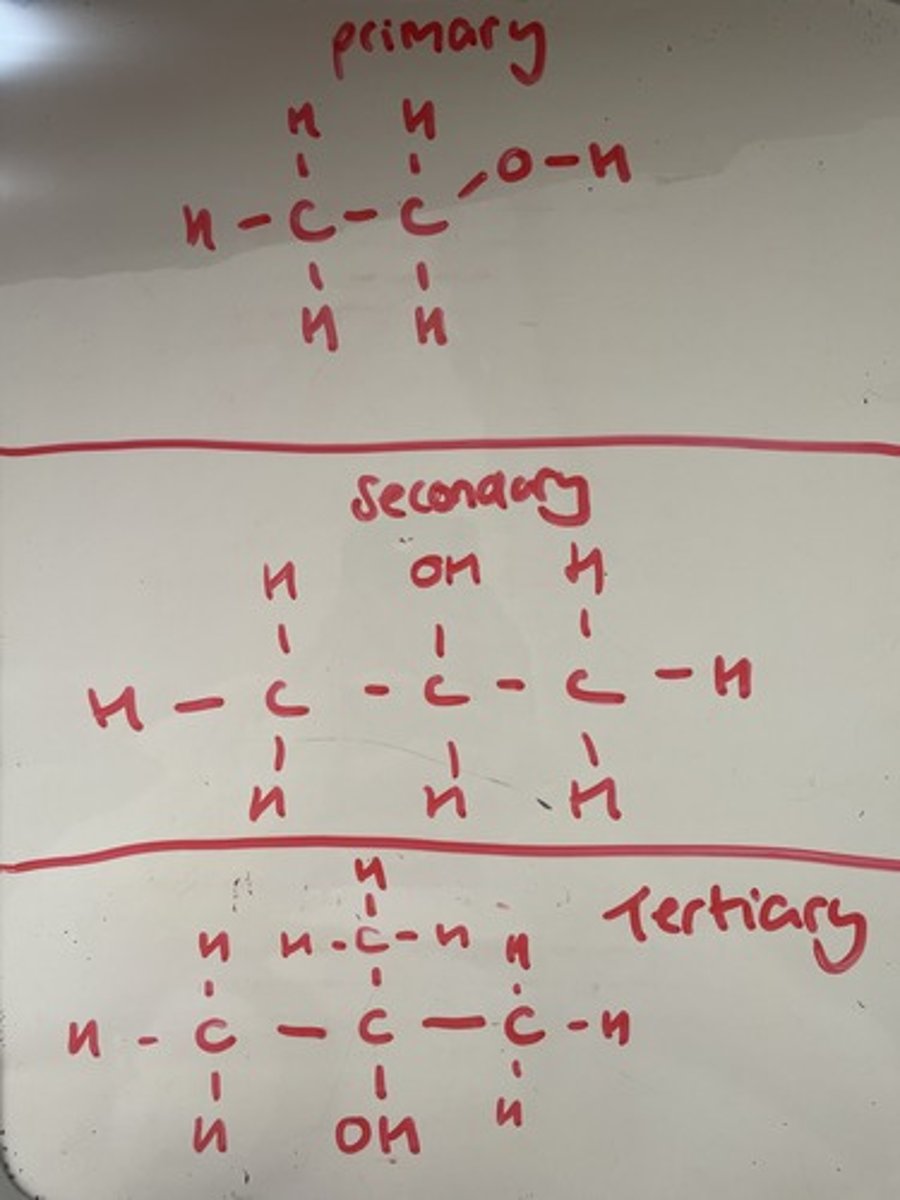 primary
H H
H - C - C - O - H
H H
Secondary
H OH H
H - C - C - C - H
H H H
Tertiary
H
H H - C - H H
H - C - C - C - H
H OH H